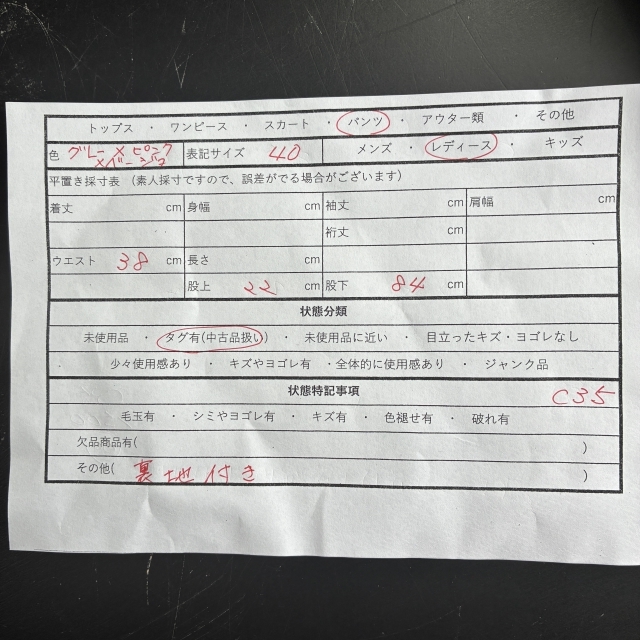 トップス ・ ワンピース ・ スカート ・ パンツ ・ アウター類 ・ その他
色 グレー×ピンク
×パープル 表記サイズ 40 メンズ ・ レディース ・ キッズ
平置き採寸表 (素人採寸ですので、誤差がでる場合がございます)
着丈 cm 身幅 cm 袖丈 cm 肩幅 cm
裄丈 cm
ウエスト 38 cm 長さ cm
股上 22 cm 股下 84 cm
状態分類
未使用品 ・ タグ有(中古品扱い) ・ 未使用品に近い ・ 目立ったキズ・ヨゴレなし
少々使用感あり ・ キズやヨゴレ有 ・全体的に使用感あり ・ ジャンク品
状態特記事項 C35
毛玉有 ・ シミやヨゴレ有 ・ キズ有 ・ 色褪せ有 ・ 破れ有
欠品商品有( )
その他( 裏地付き )